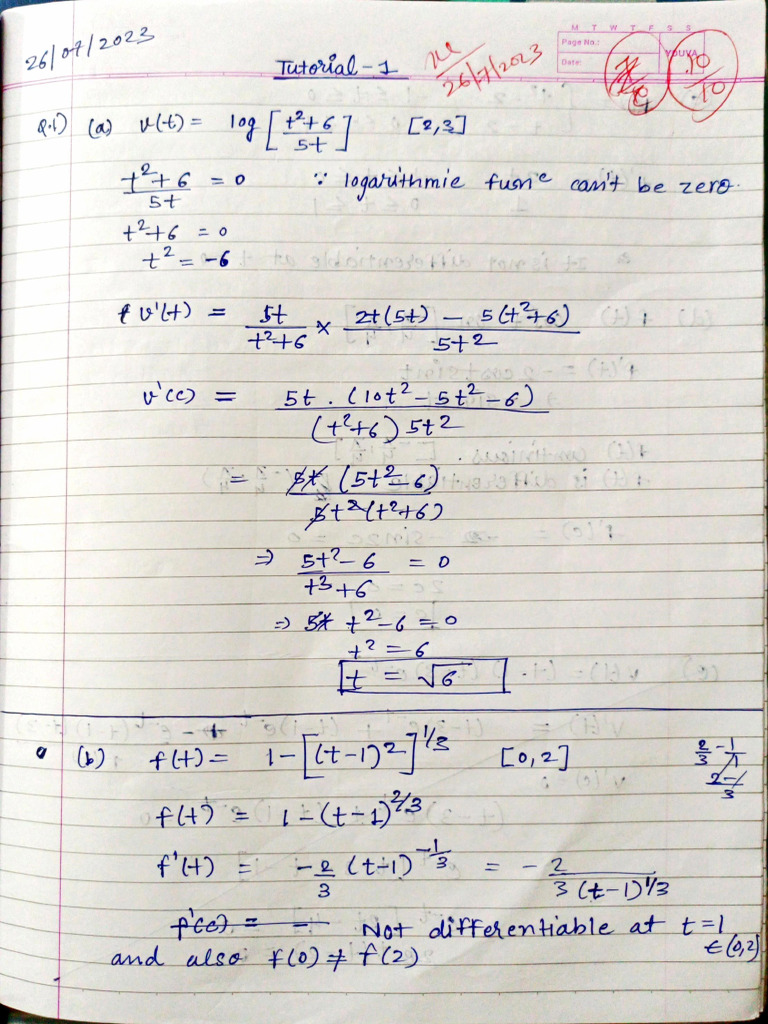 26/07/2023
M T W T F S S
Page No.:
Date:
YOUVA
Tutorial-1
26/7/2023
10/10
Q.1) (a) v(t) = log [t²+6 / 5t] [2,3]
t²+6 / 5t = 0 ∵ logarithmic funcⁿ can't be zero.
t²+6 = 0
t² = -6
v'(t) = 5t / t²+6 × 2t(5t) - 5(t²+6) / 5t2
v'(c) = 5t . (10t² - 5t² - 6) / (t²+6) 5t2
= 5t (5t² - 6) / 5t²(t²+6)
⇒ 5t² - 6 / t³+6 = 0
⇒ 5t t² - 6 = 0
t² = 6
t = √6
(b) f(t) = 1 - [(t-1)²]^1/3 [0,2]
2/3 - 1/1
2-/3
f(t) = 1 - (t-1)^2/3
f'(t) = -2/3 (t-1)^-1/3 = - 2 / 3(t-1)^1/3
f'(c) = - Not differentiable at t=1
∈(0,2)
and also f(0) ≠ f(2)